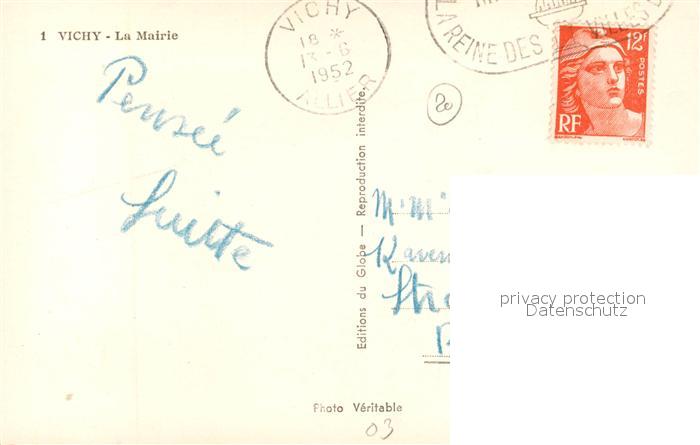 1 VICHY - La Mairie
VICHY
18 *
13-6
1952
ALLIER
LA REINE DES VILLES D
12F
POSTES
RF
20
Pensée
M. Mme
Str
Editions du Globe — Reproduction interdite.
privacy protection
Datenschutz
Photo Véritable
03